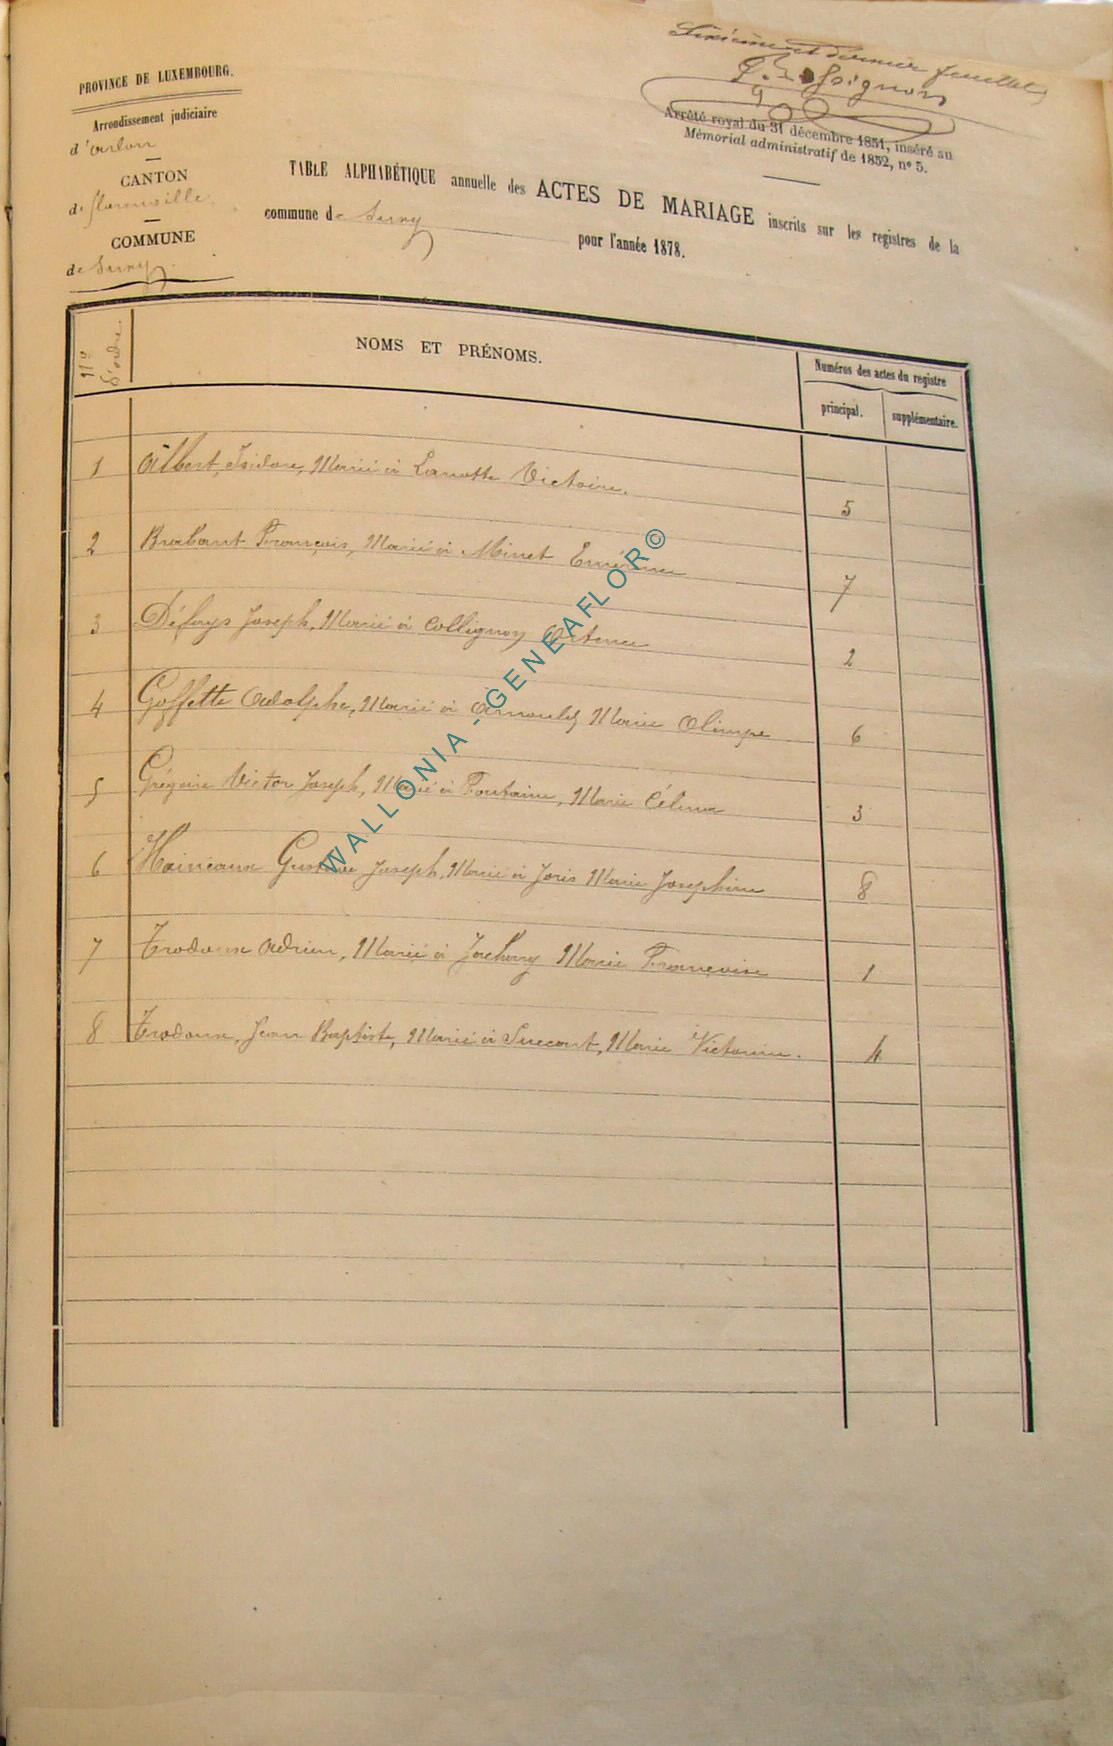 Sixième et dernier feuillet
PROVINCE DE LUXEMBOURG.
Arrondissement judiciaire
d'Arlon
CANTON
de florenville
COMMUNE
de Suxy
Arrêté royal du 31 décembre 1851, inséré au
Mémorial administratif de 1852, nº 5.
TABLE ALPHABÉTIQUE annuelle des ACTES DE MARIAGE inscrits sur les registres de la
commune de Suxy pour l'année 1878.
Nº d'ordre.
NOMS ET PRÉNOMS.
Numéros des actes du registre
principal. supplémentaire.
1 Albert, Isidore, Marié à Lamotte Victoire. 5
2 Brabant François, Marié à Minet Emérence 7
3 Défays Joseph, Marié à Collignon 2
4 Goffette Adolphe, Marié à Arnould Marie Olimpe 6
5 Grégoire Victor Joseph, Marié à Fontaine, Marie Célina 3
6 Haineaux Gustave Joseph, Marié à Joris Marie Josephine 8
7 Trodoux Adrien, Marié à Marie Françoise 1
8 Trodoux, Jean Baptiste, Marié à Marie Victorine. 4
WALLONIA - GENEAFLOR ©